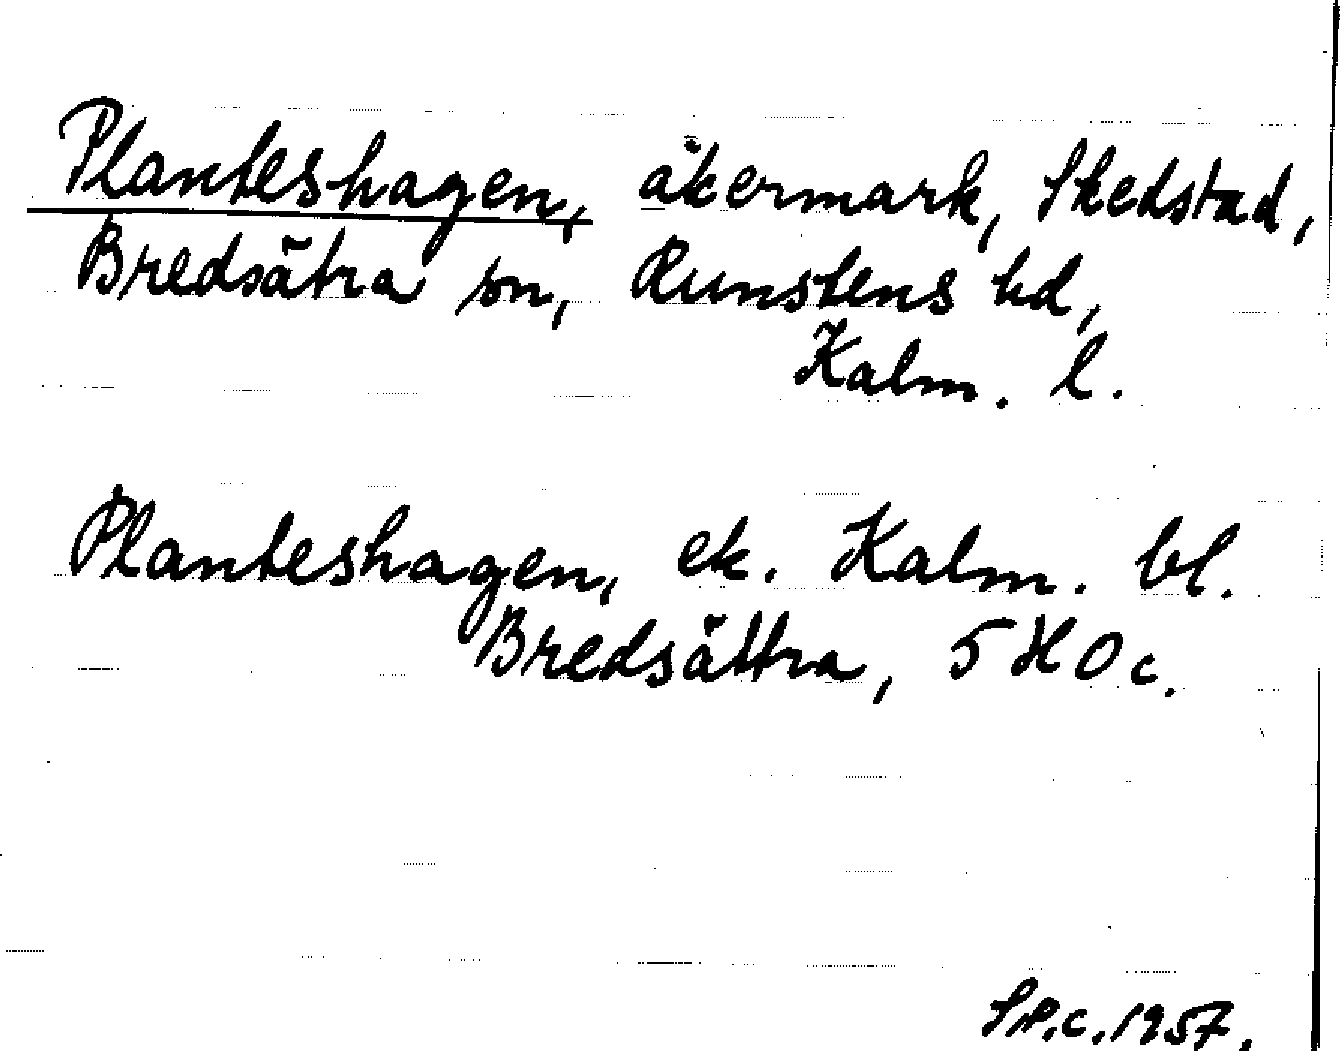 Planteshagen, åkermark, Skedstad,
Bredsätra sn, Runstens hd,
Kalm. l.
Planteshagen, ek. Kalm. bl.
Bredsättra, 5 H O c.
1957.